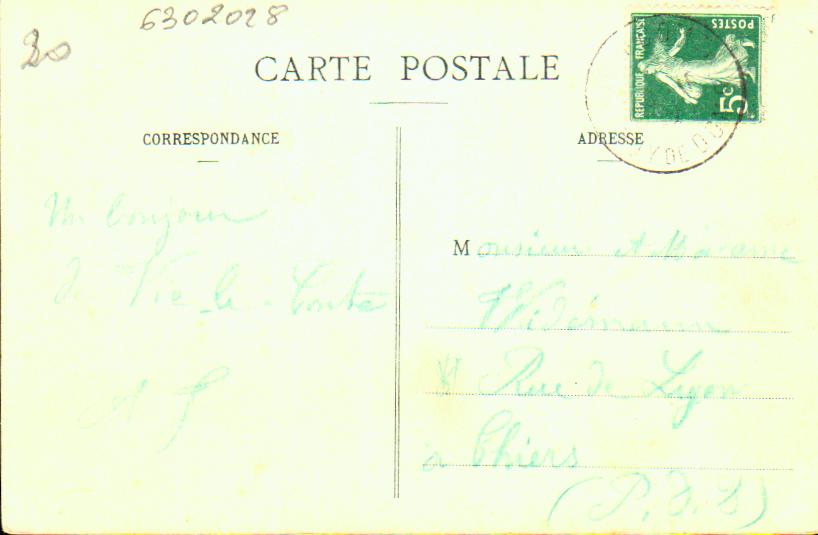 6302028
20
CARTE POSTALE
RÉPUBLIQUE FRANÇAISE
POSTES
5c
PUY DE DÔME
CORRESPONDANCE
ADRESSE
Un bonjour
de Vic-le-Comte
Monsieur et Madame
Widemann
Rue de Lyon
à Thiers
(P. d. D)